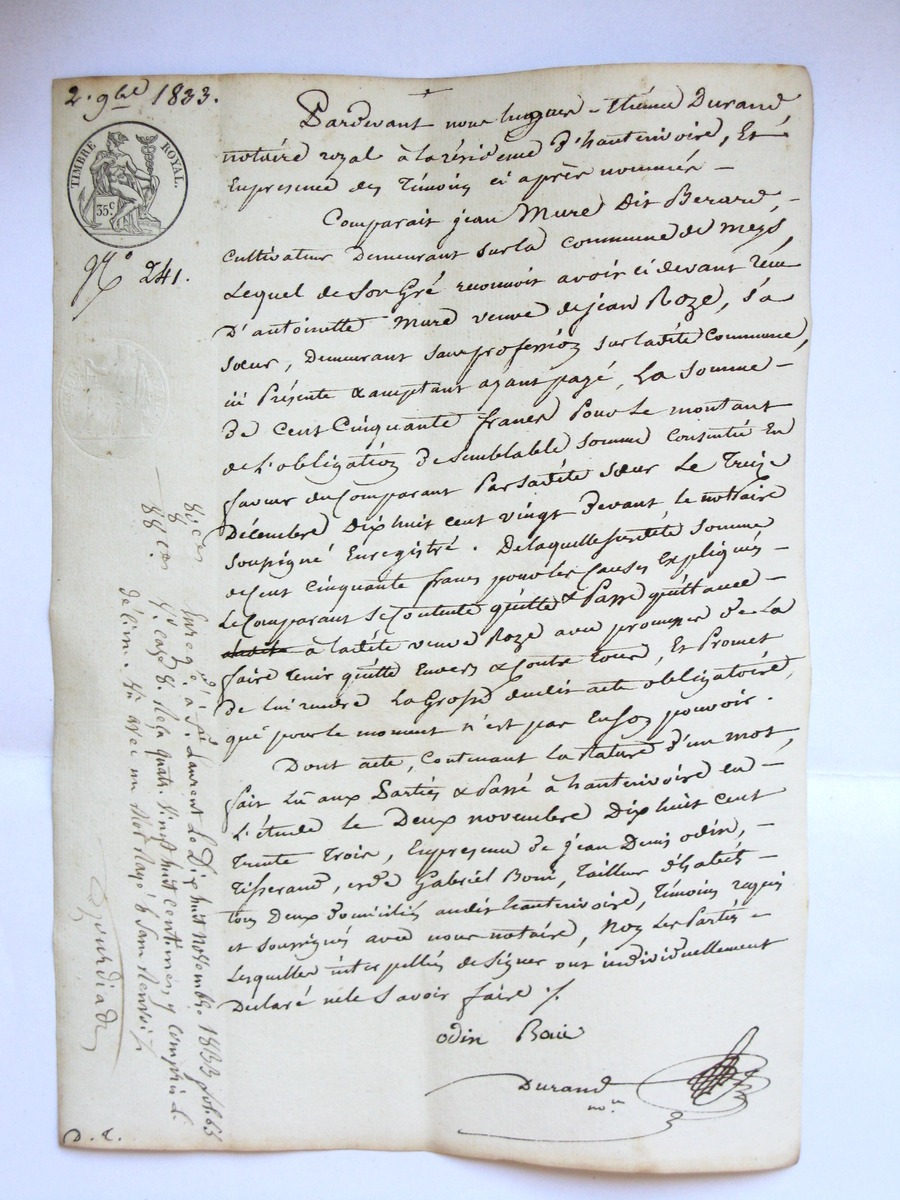 2. 9bre 1833.
TIMBRE ROYAL.
35c
No 241.
Pardevant nous hugues-Etienne Durand
notaire royal à la résidence d'hauterivoire, Et
En présence des Témoins ci après nommés –
Comparait jean Mure Dit Berard, –
Cultivateur Demeurant sur la commune de meys,
Lequel de son Gré reconnoit avoir ci devant reçu
D'antoinette Mure veuve de jean Roze, sa
sœur, Demeurant sans profession sur ladite Commune,
ici Présente & acceptant ayant payé, La somme –
De cent Cinquante francs Pour le montant
de l'obligation De semblable somme Consentie En
faveur du Comparant Par sadite sœur Le Treize
Décembre Dix huit cent vingt Devant le notaire
soussigné Enregistré. De laquelle susdite somme
de Cent Cinquante francs pour les Causes Expliquées –
Le Comparant se Contente quitte & Passe quittance –
à ladite veuve Roze avec promesse de La
faire tenir quitte Envers & Contre tous, Et Promet
de lui rendre La Grosse dudit acte obligatoire,
qui pour le moment n'est pas En son pouvoir.
Dont acte, Contenant la Rature d'un mot,
fait Lu aux Parties & Passé à hauterivoire en –
L'étude le Deux novembre Dix huit cent
Trente Trois, En présence de jean Denis odin, –
Tisserand, et de Gabriel Boui, Tailleur d'habits –
tous deux Domiciliés audit hauterivoire, Témoins requis
et soussignés avec nous notaire, Non Les Parties –
Lesquelles interpellées de signer ont individuellement
Déclaré ne le savoir faire ./.
odin Boui
Durand
nre
80. cen
8
88. cen
Enregé. à St. Laurent Le Dix huit novembre 1833 fol. 65
Vo. case 8. Reçu quatre vingt huit centimes y compris Le
décime. Lu avec un Mot Rayé & sans Renvoi ./.
D. L.